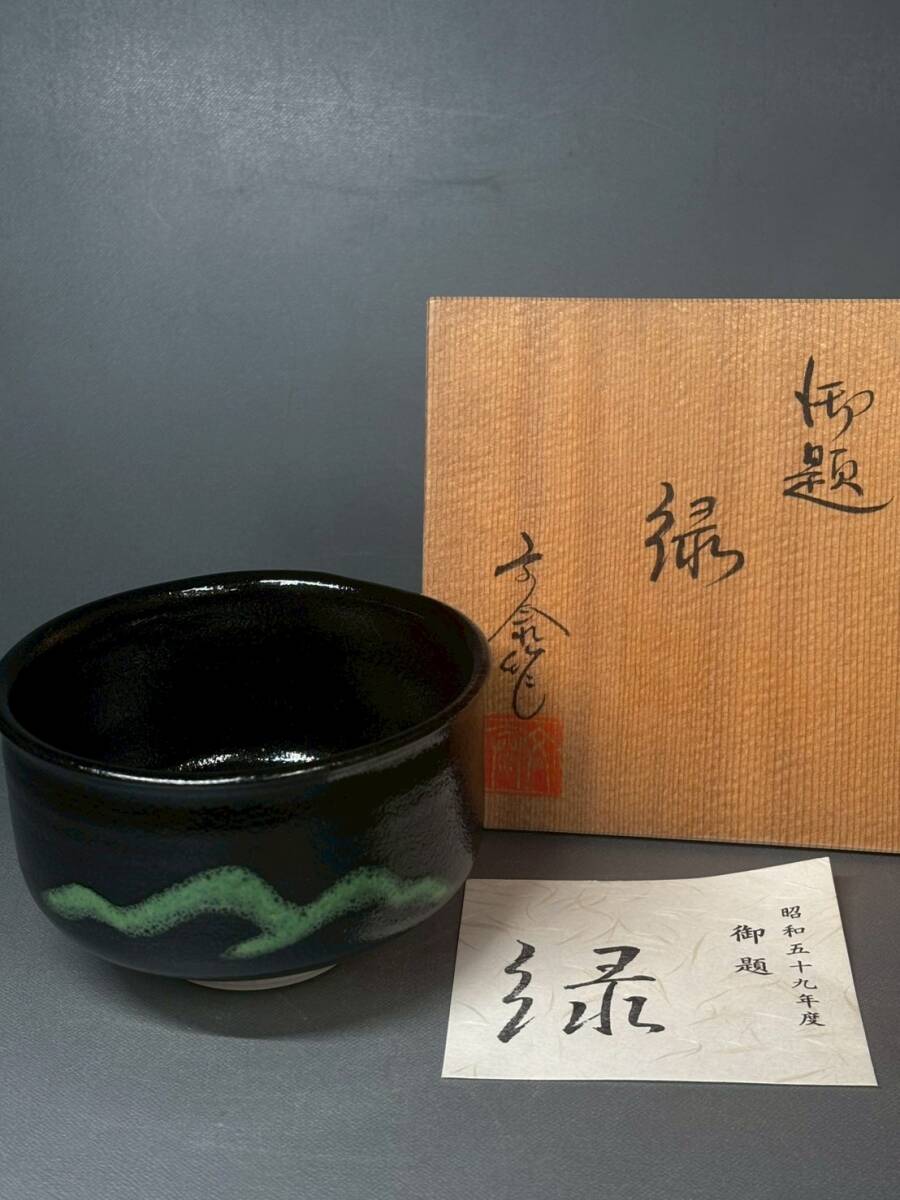 御題
緑
昭和五十九年度
御題
緑